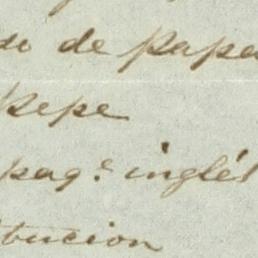 do de pape
Pepe
paq.e inglés
tucion